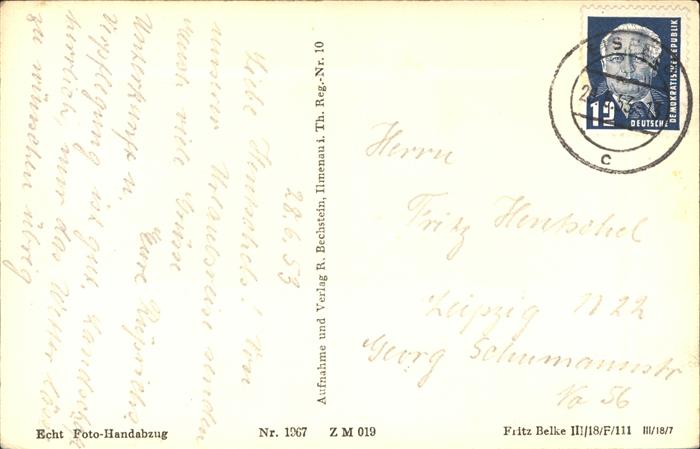 28.6.53
Liebe Hentschels! Von
unserer Urlaubsreise senden
euch viele Grüsse
Eure
Unterkunft u.
Verpflegung ist gut, Landschaft
herrlich, nur das Wetter lässt
zu wünschen übrig
Aufnahme und Verlag R. Bechstein, Ilmenau i. Th. Reg.-Nr. 10
DEUTSCHE
DEMOKRATISCHE REPUBLIK
C
Herrn
Fritz Hentschel
Leipzig N 22
Georg Schumannstr
No 56
Echt Foto-Handabzug Nr. 1967 Z M 019
Fritz Belke III/18/F/111 III/18/7